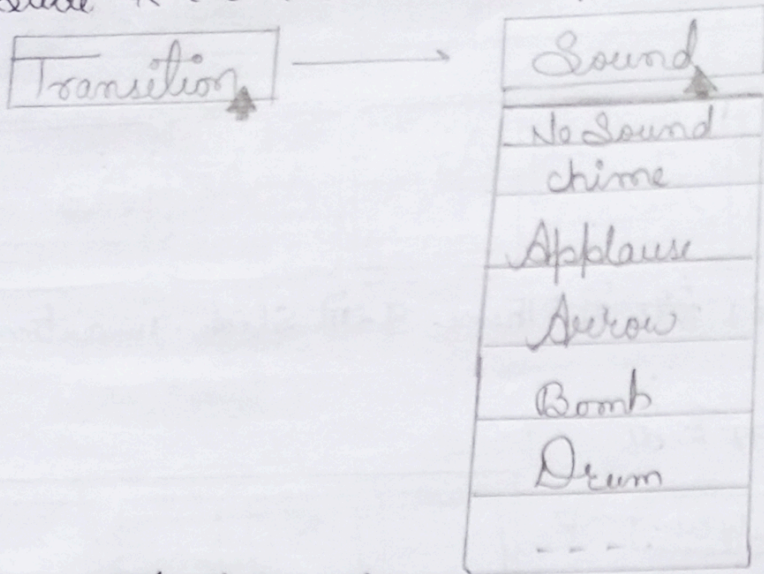 Transition
Sound
No Sound
chime
Applause
Arrow
Bomb
Drum
- - - -